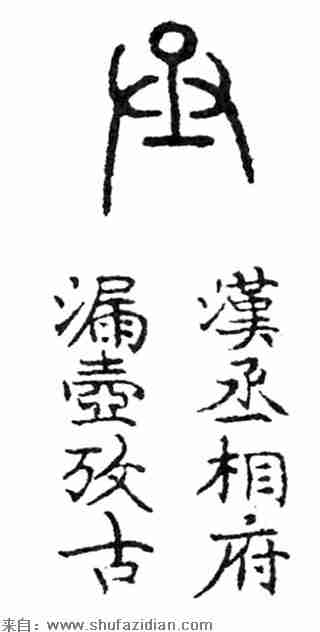 漢丞相府
漏壺攷古
来自：www.shufazidian.com